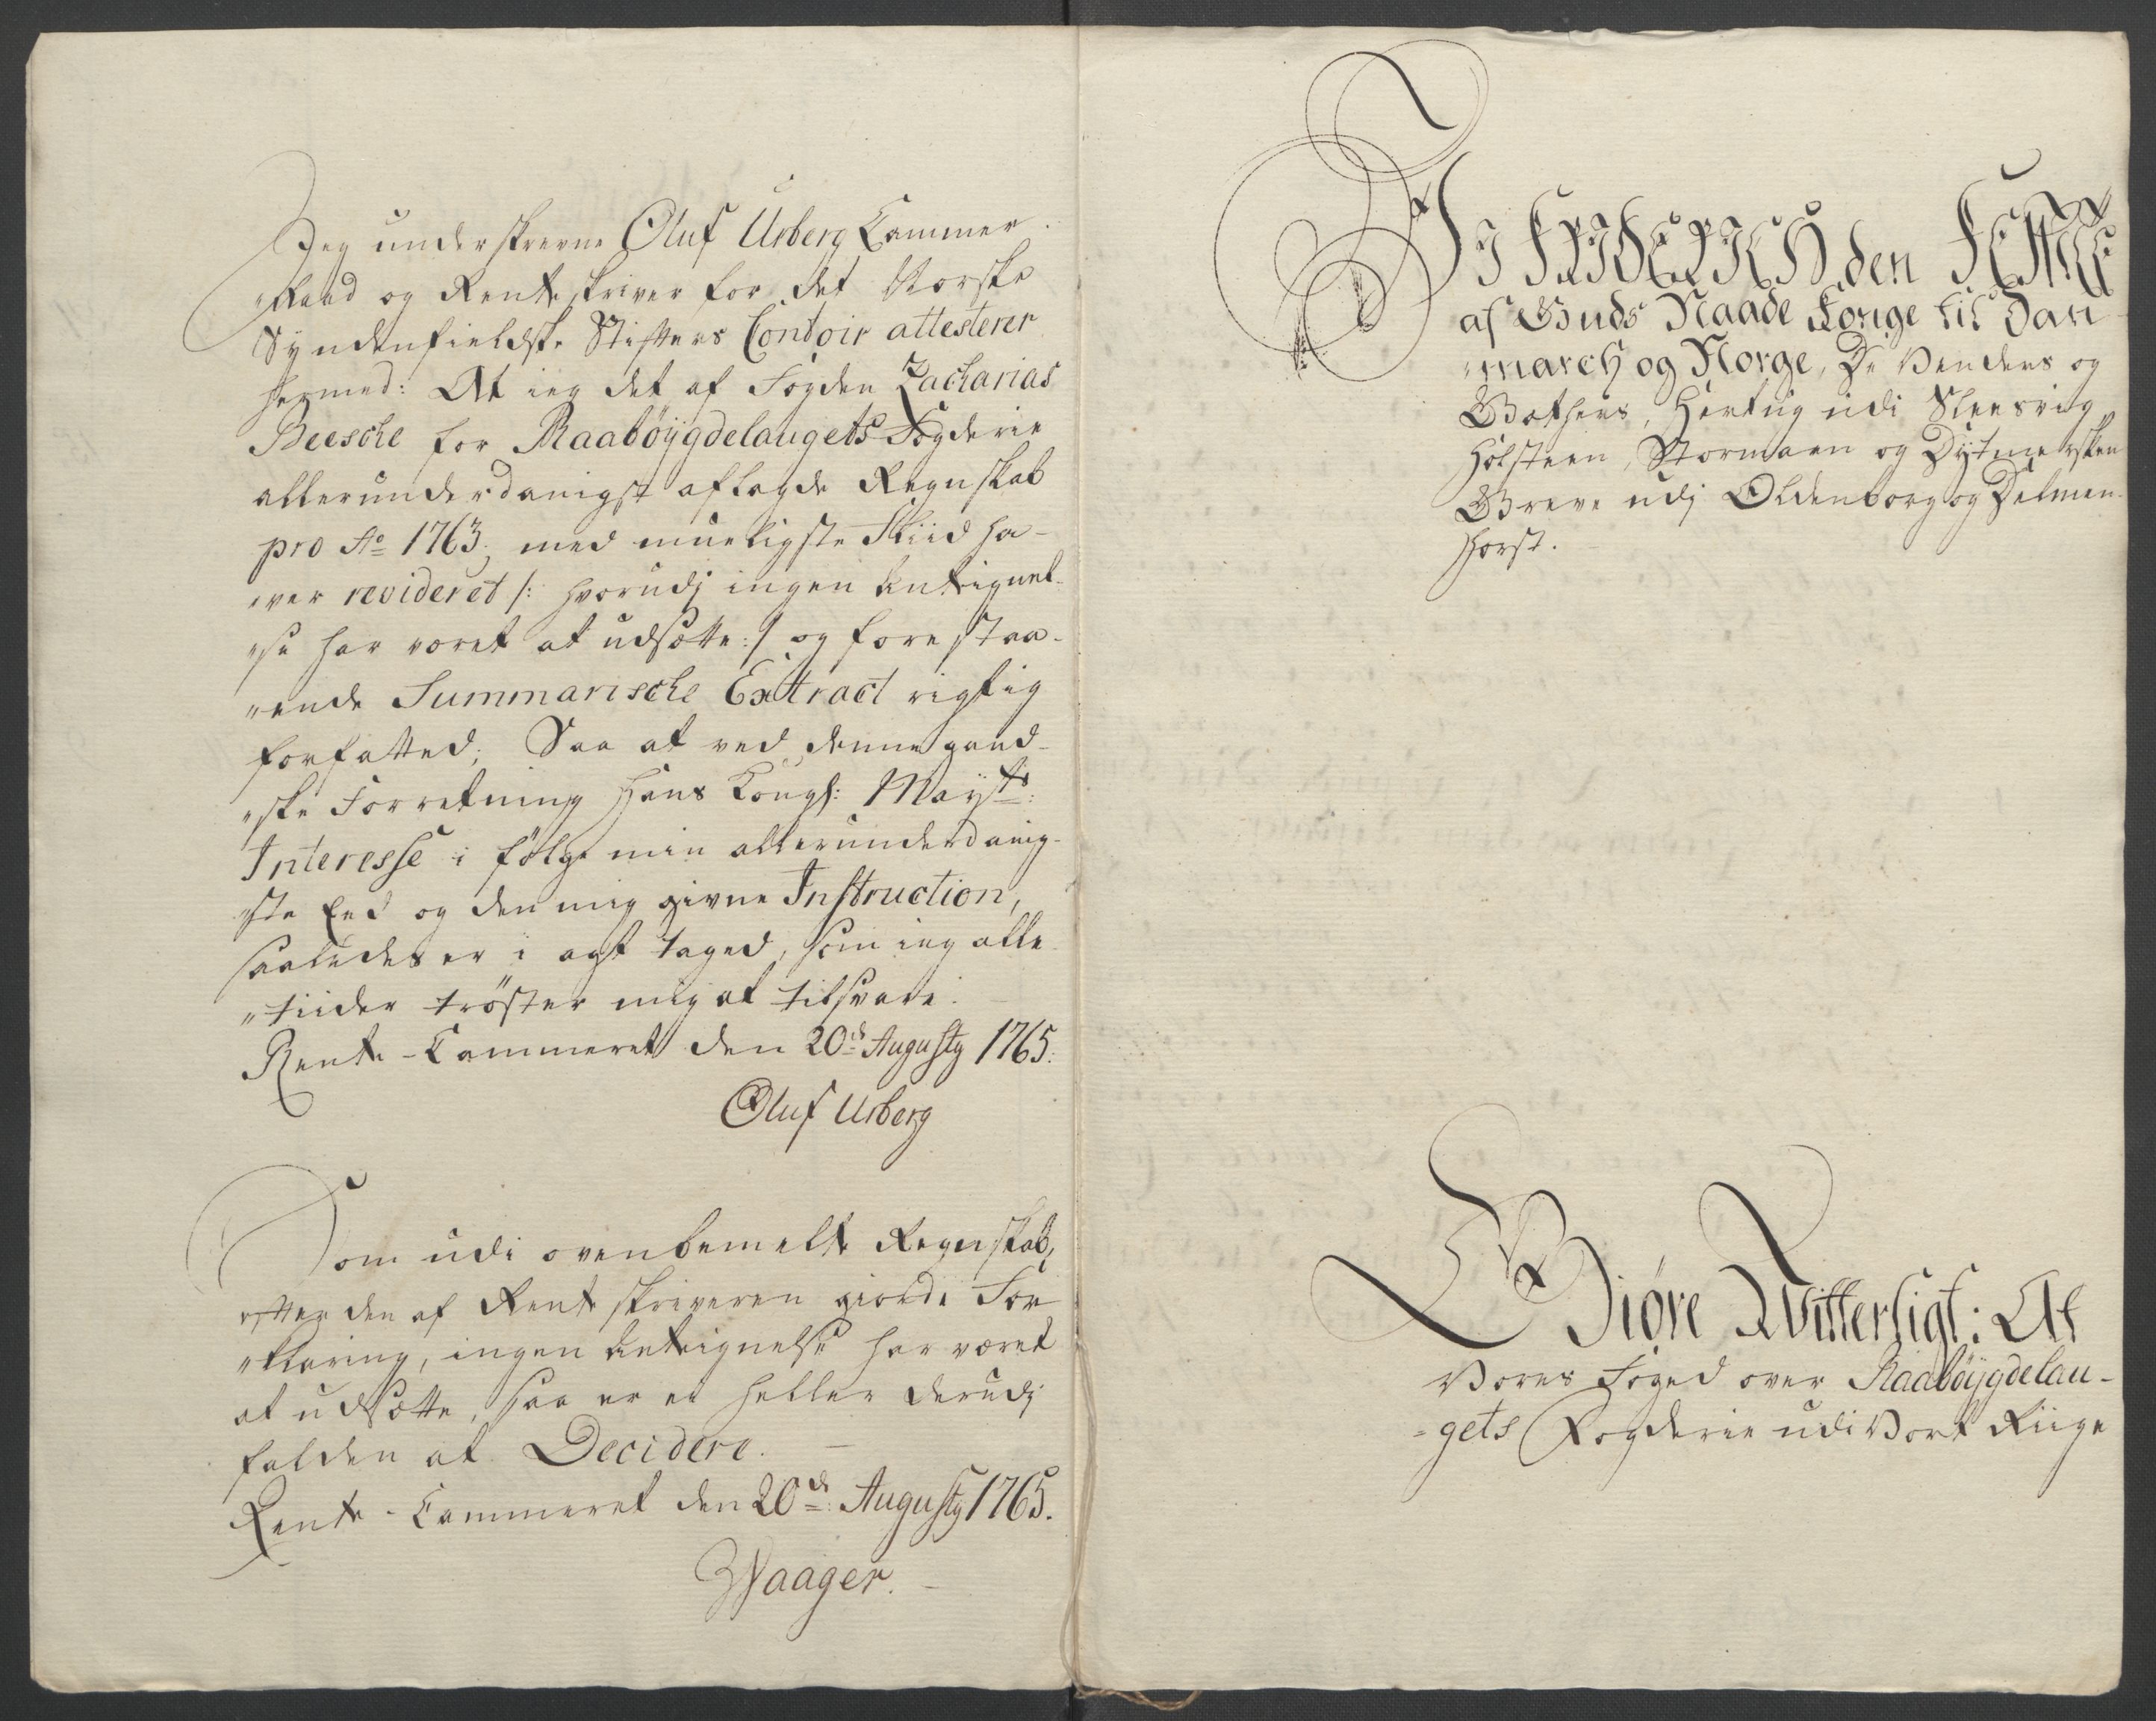 Jeg underskrevne Oluf Urberg Cammer
„Raad og Renteskriver for det Norske
Syndenfieldske Stifters Contoir attesterer
hermed: At ieg det af Fogden Zacharias
Beesche for Raabøygdelaugets Fogderie
allerunderdanigst aflagde Regnskab
pro Ao 1763. med mueligste Fliid ha-
„ver revideret /: hvorudj ingen Anteignel-
„se har været at udsætte :/ og forestaa-
„ende Summarische Extract rigtig
forfatted; Saa at ved denne gand-
„ske Forretning Hans Kongl: Mayts:
Interesse i følge min allerunderdanig-
„ste Eed og den mig givne Instruction,
saaledes er i agt taged, som ieg alle
„tiider trøster mig at tilsvare.
Rente-Cammeret den 20de Augusty 1765.
Oluf Urberg
Som udi ovenbemelte Regnskab,
efter den af Renteskriveren giorde For
„klaring, ingen Anteignelse har været
at udsætte, saa er ei heller derudj
falden at Decidere.
Rente-Cammeret den 20de: Augusty 1765.
Waager.
Vj Friderich den Femte
af Guds Naade Konge til Dan
„march og Norge, De Venders og
Gothers, Hertug udi Sleesvig
Holsteen, Stormarn og Dytmersken
Greve udj Oldenborg og Delmen-
Horst.
Giøre Vitterligt: At
Vores Foged over Raabøygdelau-
-gets Fogderie udi Vort Riige